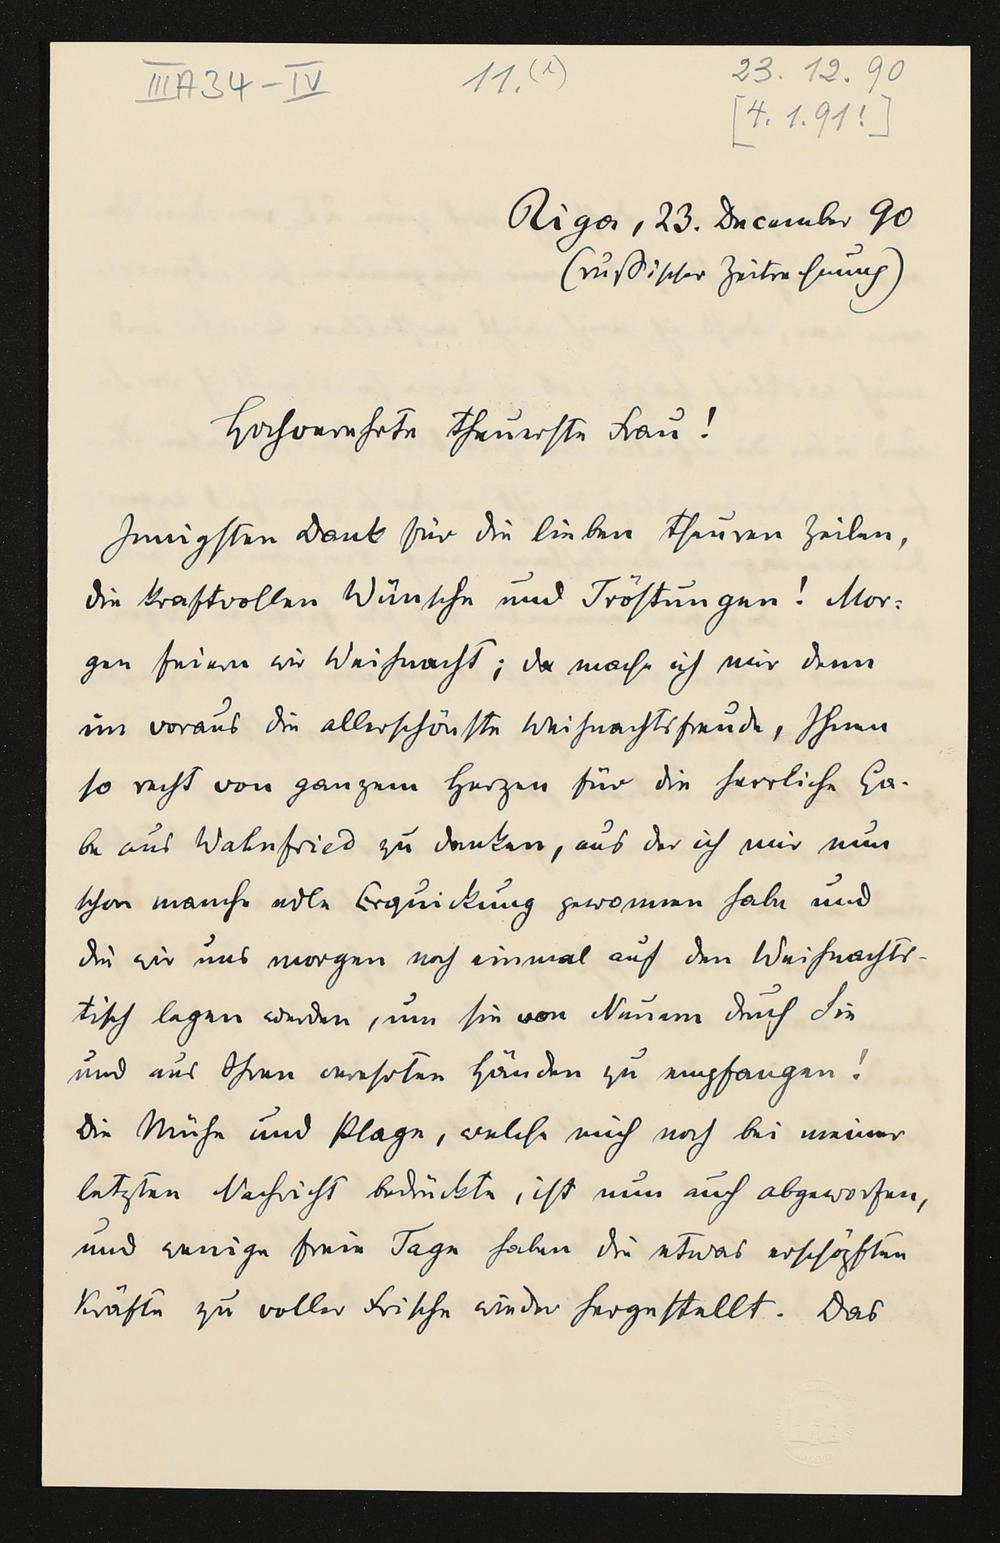 IIIA34-IV
11.(1)
23. 12. 90
[4. 1. 91!]
Riga, 23. December 90
(russischer Zeitrechnung)
Hochverehrte theuerste Frau!
Innigsten Dank für die lieben theuren Zeilen,
die kraftvollen Wünsche und Tröstungen! Mor-
gen feiern wir Weihnacht; da mache ich mir denn
im voraus die allerschönste Weihnachtsfreude, Ihnen
so recht von ganzem Herzen für die herrliche Ga-
be aus Wahnfried zu danken, aus der ich mir nun
schon manche edle Erquickung gewonnen habe und
die wir uns morgen noch einmal auf den Weihnachts-
tisch legen werden, um sie von Neuem durch Sie
und aus Ihren verehrten Händen zu empfangen!
Die Mühe und Plage, welche mich noch bei meiner
letzten Nachricht bedrückte, ist nun auch abgeworfen,
und wenige freie Tage haben die etwas erschöpften
Kräfte zu voller Frische wieder hergestellt. Das